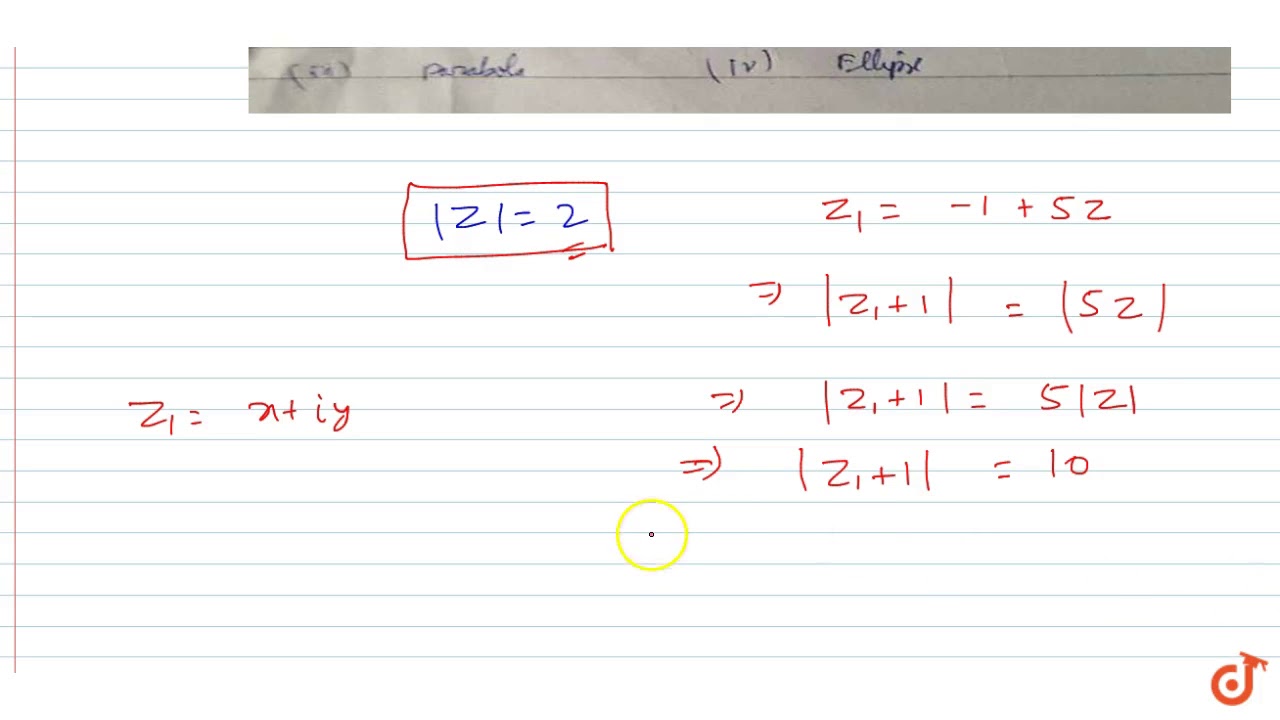 (iii) Parabola (iv) Ellipse
|Z| = 2 Z₁ = -1 + 5Z
⇒ |Z₁ + 1| = |5Z|
Z₁ = x + iy ⇒ |Z₁ + 1| = 5|Z|
⇒ |Z₁ + 1| = 10